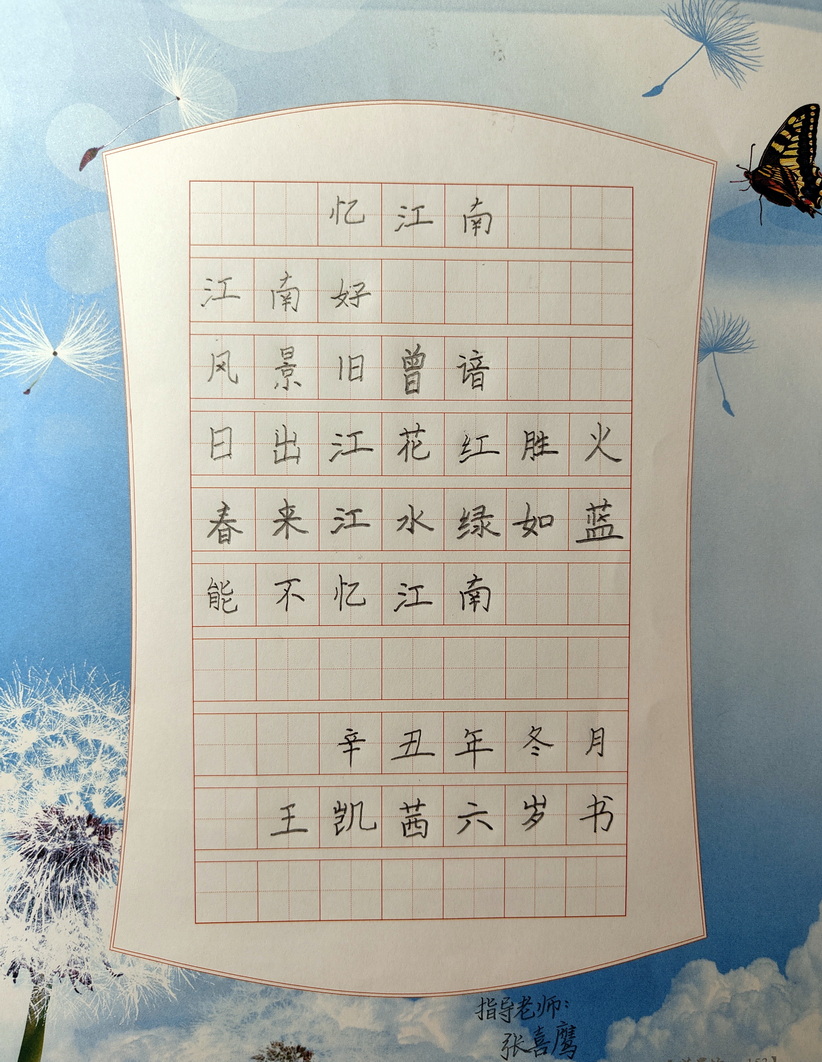 忆江南
江南好
风景旧曾谙
日出江花红胜火
春来江水绿如蓝
能不忆江南
辛丑年冬月
王凯茜六岁书
指导老师:
张喜鹰